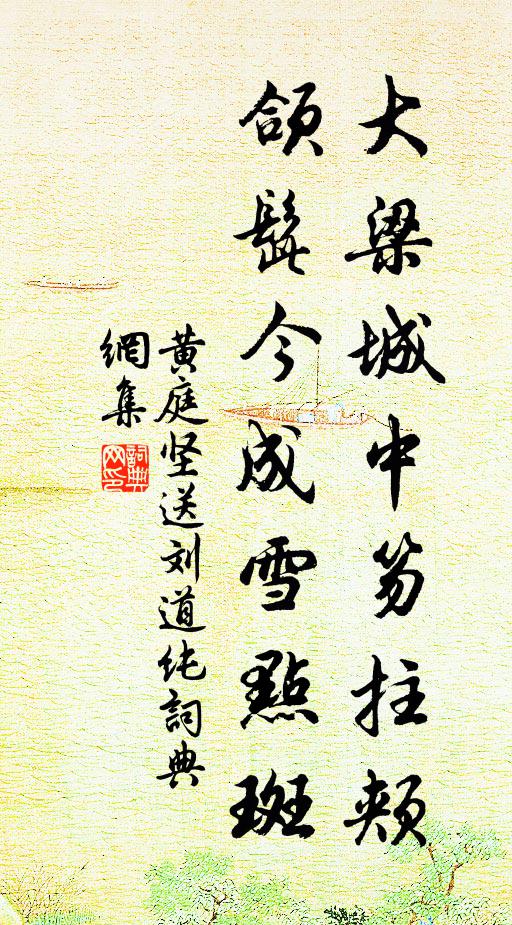 大梁城中笏拄頰
頷髭今成雪點斑
黄庭坚送刘道纯詞典
網集
詞典网印